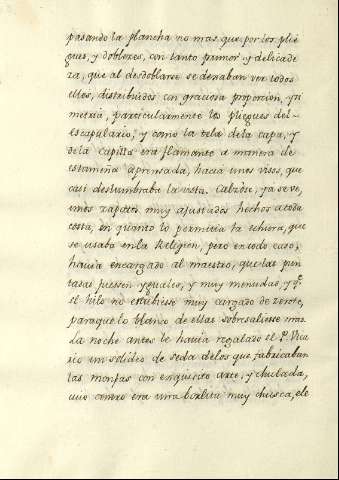 pasando la plancha no mas que por los plie
gues, y dobleces, con tanto primor y delicade
za, que al desdoblarse se dexaban ver todos
ellos, distribuidos con graciosa proporcion, y si
metria, particularmente los pliegues del
escapulario; y como la tela de la capa, y
de la capilla era flamante a manera de
estameña aprensada, hacia unos visos, que
casi deslumbraba la vista. Calzòse, ya se ve,
unos zapatos muy ajustados hechos a toda
costa, en quanto lo permitia la echura, que
se usaba en la Religion, pero en todo caso,
havia encargado al maestro, que las pun
tadas fuesen yguales, y muy menudas, y q.e
el hilo no estubiese muy cargado de zerote,
para que lo blanco de ellas sobresaliese mas.
La noche antes le havia regalado el P. Vica
rio un solideo de seda de los que fabricaban
las monjas con exquisito arte, y chulada,
cuio centro era una borlita muy chusca, ele